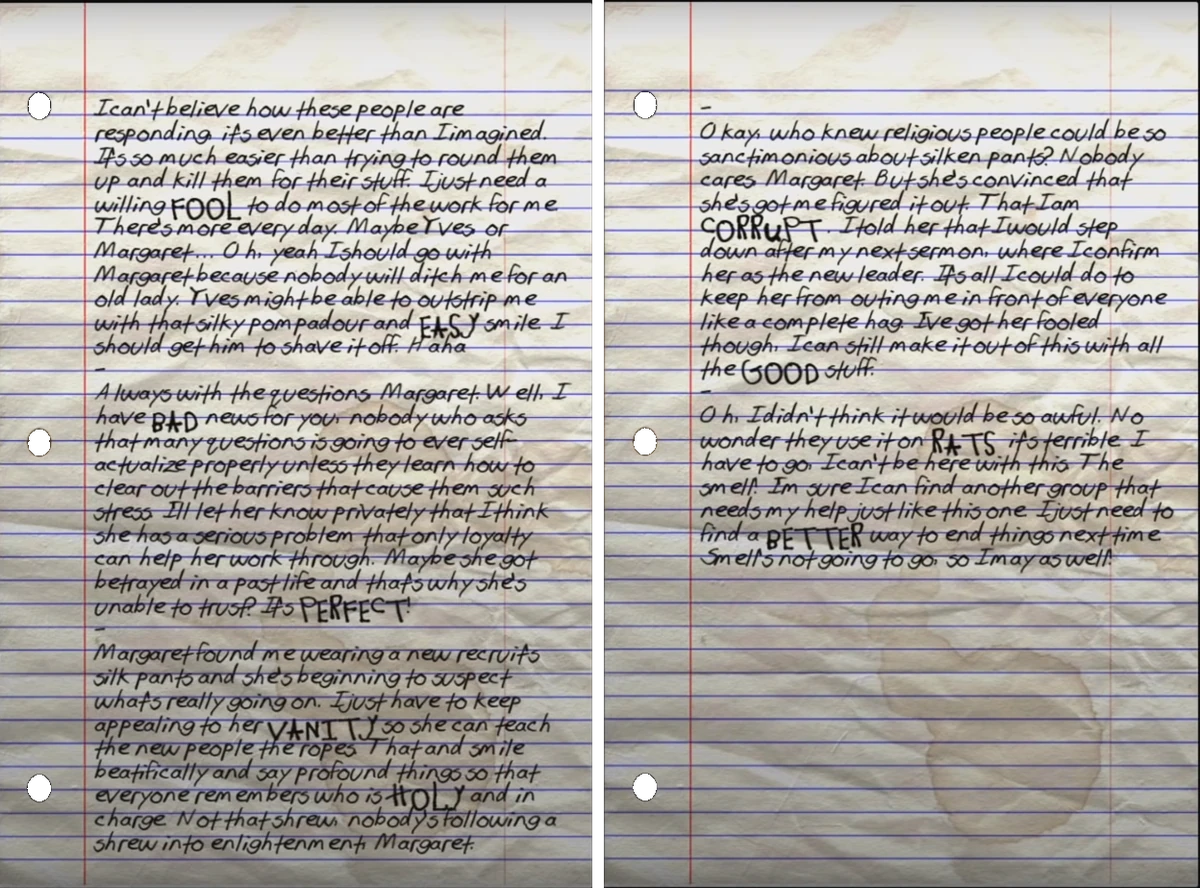 I can't believe how these people are
responding, it's even better than I imagined.
It's so much easier than trying to round them
up and kill them for their stuff. I just need a
willing FOOL to do most of the work for me
There's more every day. Maybe Yves or
Margaret... Oh, yeah I should go with
Margaret because nobody will ditch me for an
old lady. Yves might be able to outstrip me
with that silky pompadour and EASY smile. I
should get him to shave it off. Haha
-
Always with the questions, Margaret. Well, I
have BAD news for you, nobody who asks
that many questions is going to ever self-
actualize properly unless they learn how to
clear out the barriers that cause them such
stress. I'll let her know privately that I think
she has a serious problem that only loyalty
can help her work through. Maybe she got
betrayed in a past life and that's why she's
unable to trust? It's PERFECT!
-
Margaret found me wearing a new recruit's
silk pants and she's beginning to suspect
what's really going on. I just have to keep
appealing to her VANITY so she can teach
the new people the ropes. That and smile
beatifically and say profound things so that
everyone remembers who is HOLY and in
charge. Not that shrew, nobody's following a
shrew into enlightenment, Margaret.
-
Okay, who knew religious people could be so
sanctimonious about silken pants? Nobody
cares Margaret. But she's convinced that
she's got me figured it out. That I am
CORRUPT. I told her that I would step
down after my next sermon, where I confirm
her as the new leader. It's all I could do to
keep her from outing me in front of everyone
like a complete hag. I've got her fooled
though, I can still make it out of this with all
the GOOD stuff.
-
Oh, I didn't think it would be so awful. No
wonder they use it on RATS, it's terrible. I
have to go, I can't be here with this. The
smell! I'm sure I can find another group that
needs my help just like this one. I just need to
find a BETTER way to end things next time
Smell's not going to go, so I may as well!